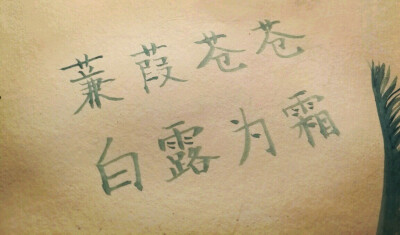 蒹葭苍苍
白露为霜